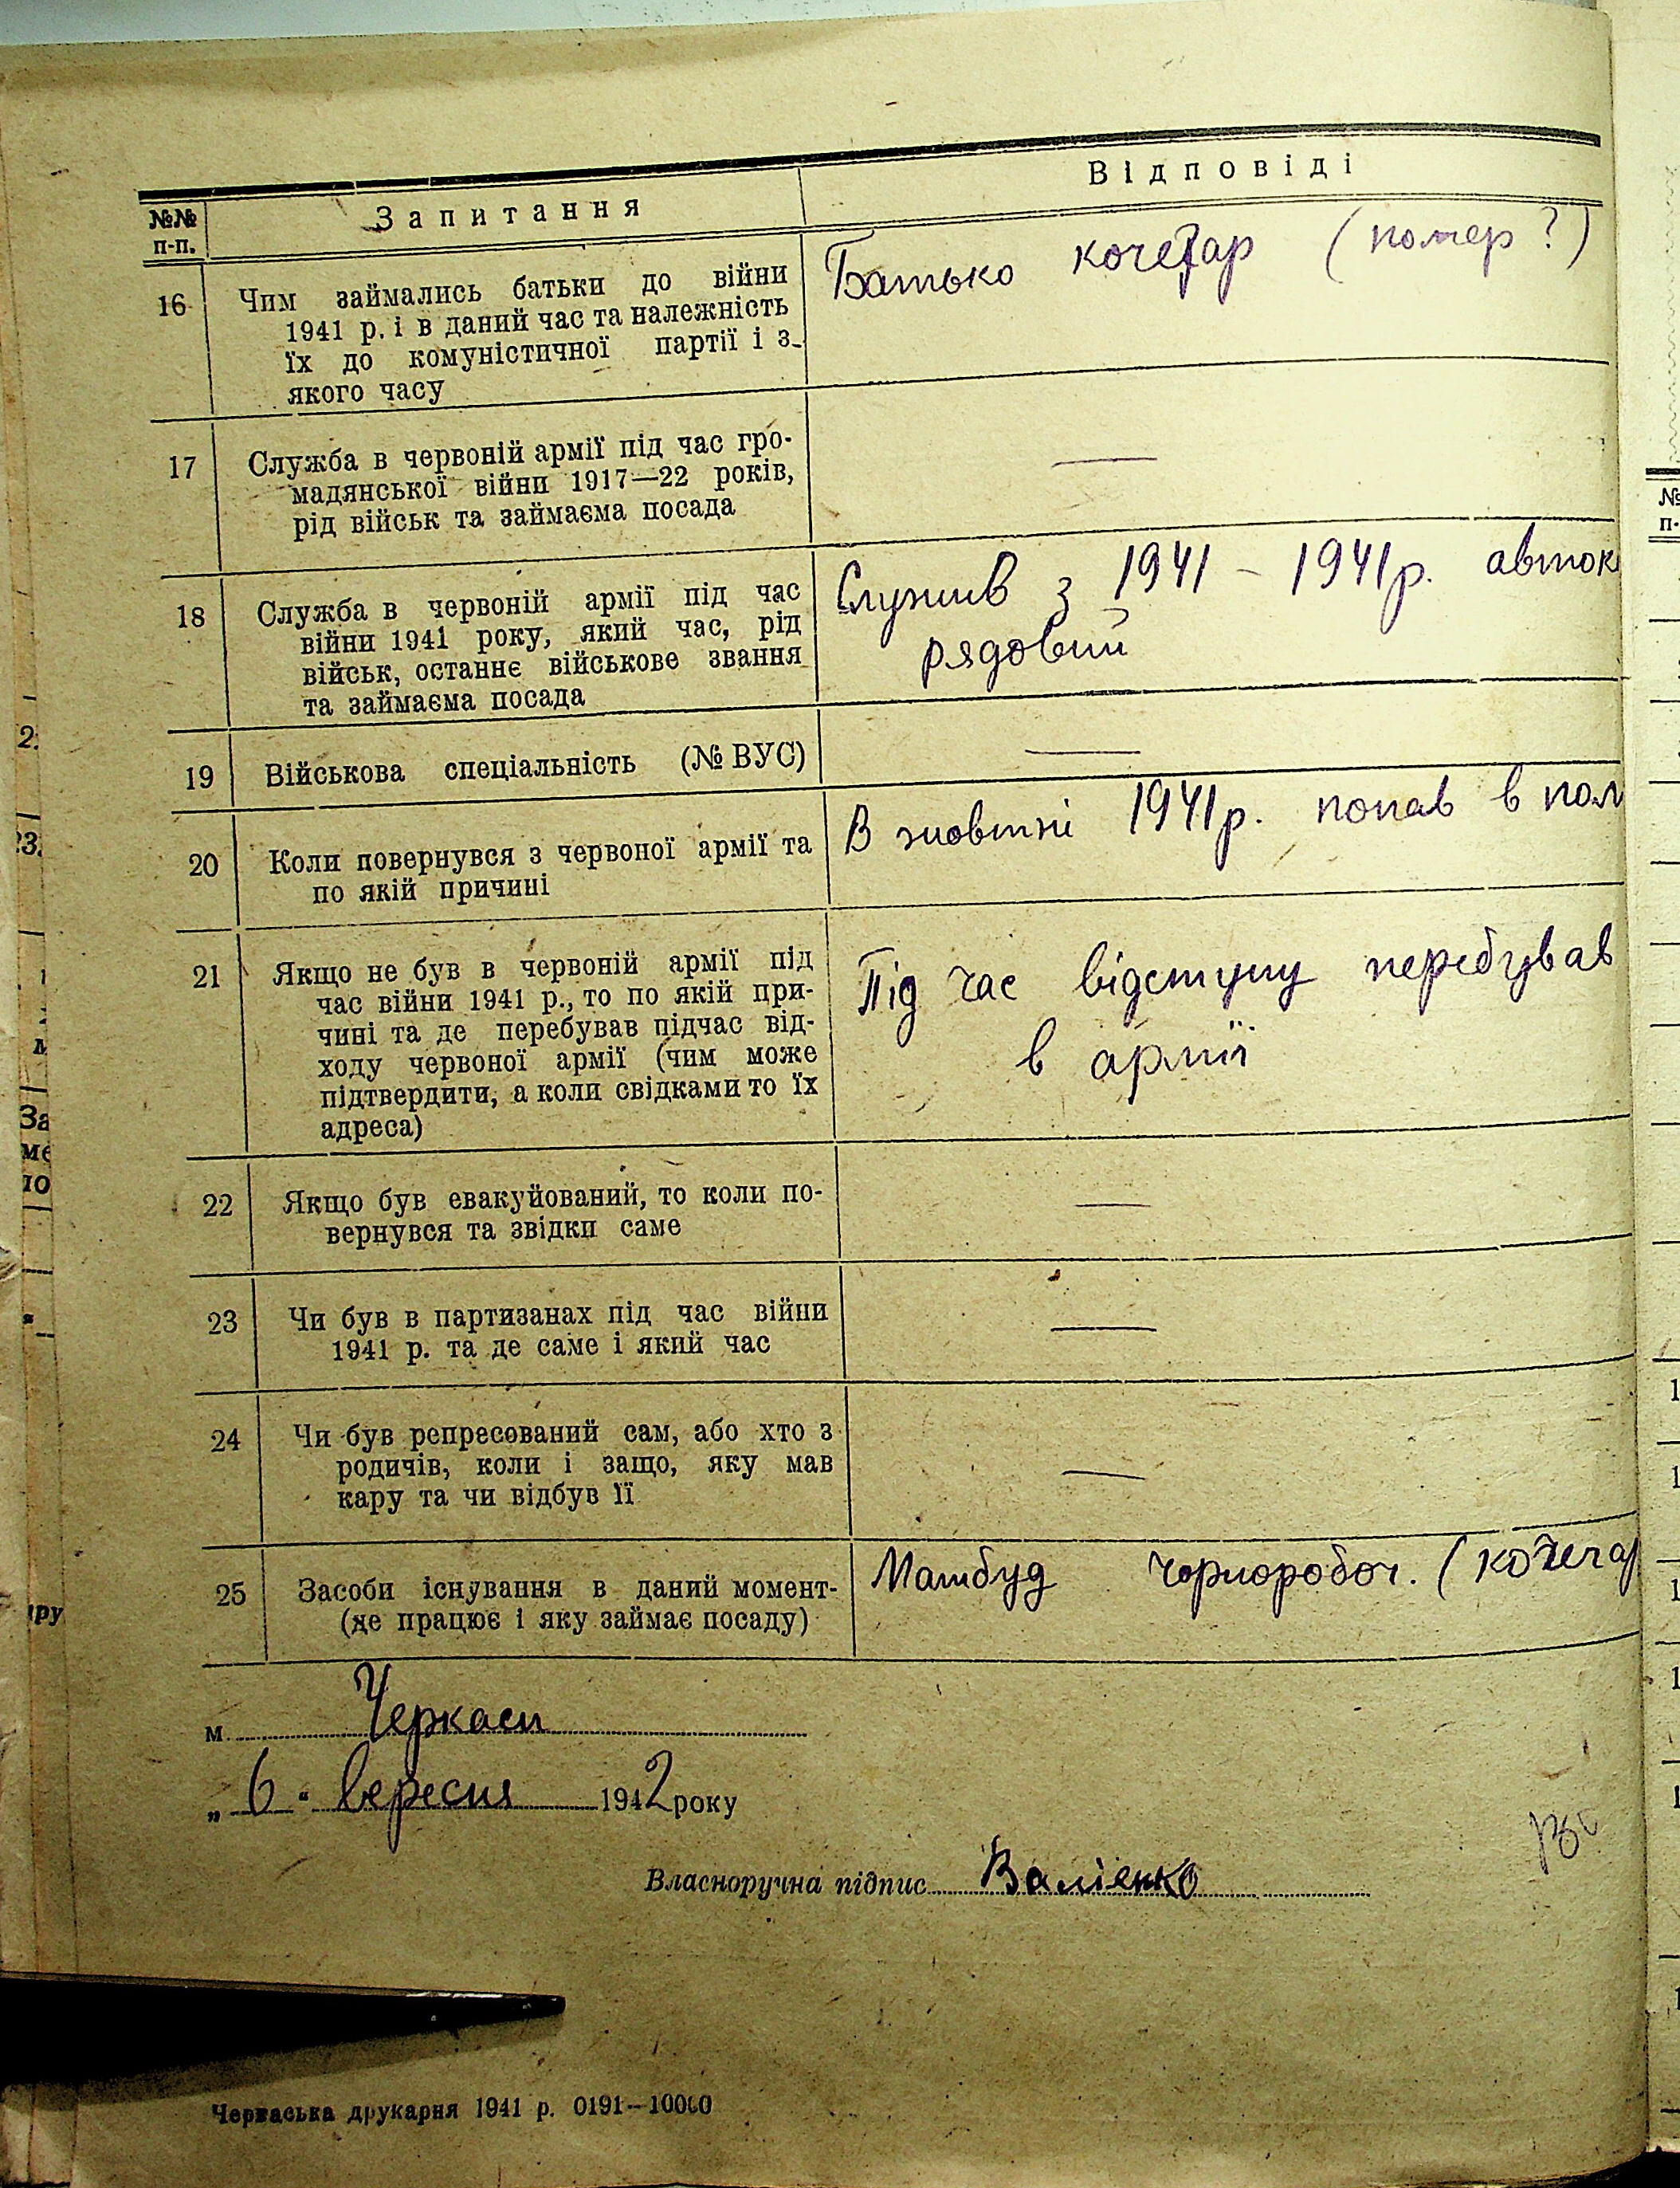 №№ п-п.
Запитання
Відповіді
16 Чим займались батьки до війни
1941 р. і в даний час та належність
їх до комуністичної партії і з
якого часу
Батько кочегар (помер?)
17 Служба в червоній армії під час гро-
мадянської війни 1917—22 років,
рід військ та займаєма посада
—
18 Служба в червоній армії під час
війни 1941 року, який час, рід
військ, останнє військове звання
та займаєма посада
Служив з 1941 – 1941р. авток
рядовий
19 Військова спеціальність (№ ВУС)
—
20 Коли повернувся з червоної армії та
по якій причині
В жовтні 1941р. попав в пол
21 Якщо не був в червоній армії під
час війни 1941 р., то по якій при-
чині та де перебував підчас від-
ходу червоної армії (чим може
підтвердити, а коли свідками то їх
адреса)
Під час відступу перебував
в армії
22 Якщо був евакуйований, то коли по-
вернувся та звідки саме
—
23 Чи був в партизанах під час війни
1941 р. та де саме і який час
—
24 Чи був репресований сам, або хто з
родичів, коли і защо, яку мав
кару та чи відбув її
—
25 Засоби існування в даний момент-
(де працює і яку займає посаду)
Машбуд чорнороboч. (кочегар
м. Черкаси
„ 6 " вересня 1942 року
Власноручна підпис Валієнко
Черкаська друкарня 1941 р. 0191—10000